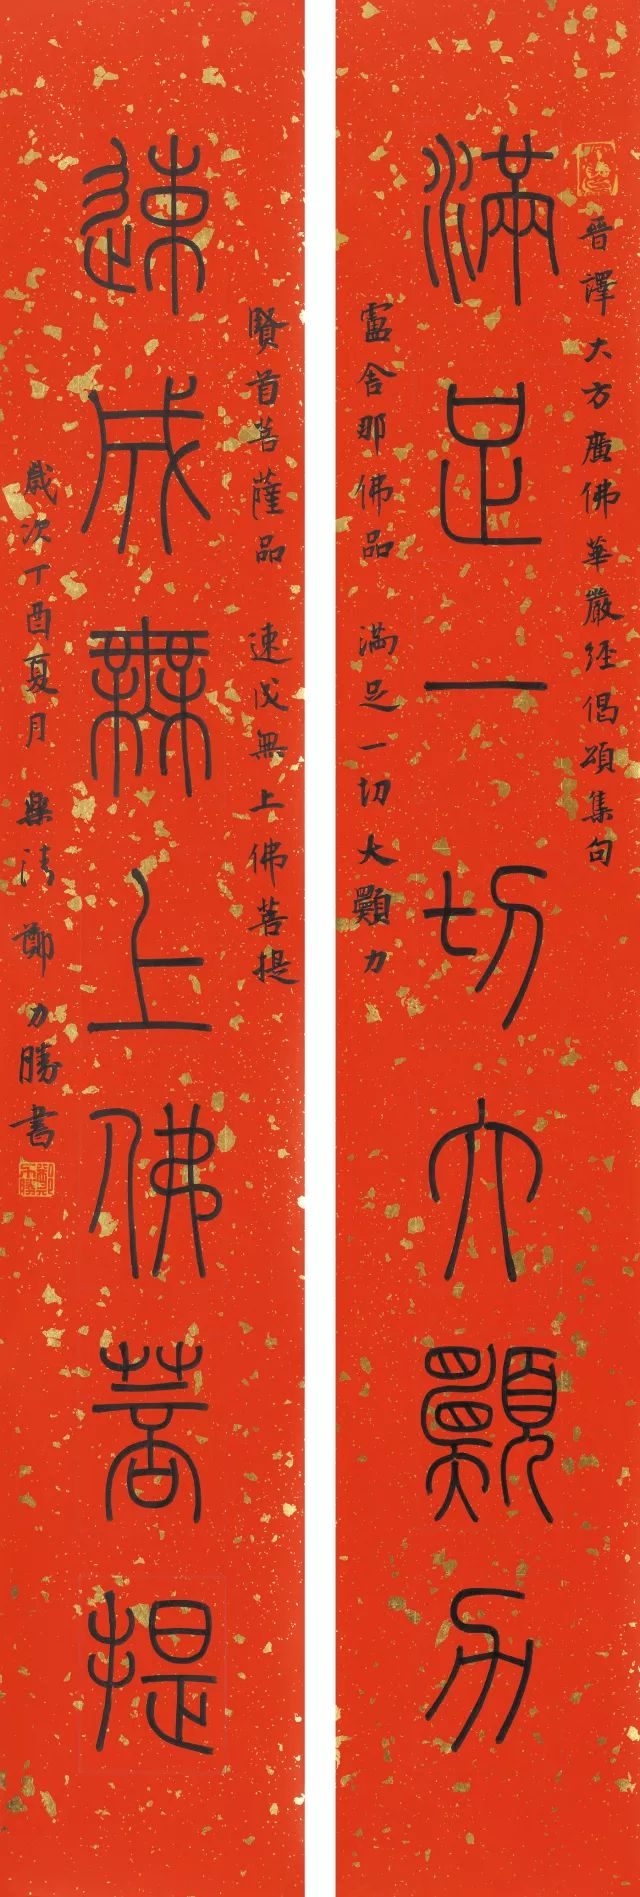 晉譯大方廣佛華嚴經偈頌集句
滿足一切大願力
盧舍那佛品 滿足一切大願力
賢首菩薩品 速成無上佛菩提
速成無上佛菩提
歲次丁酉夏月樂清鄭力勝書